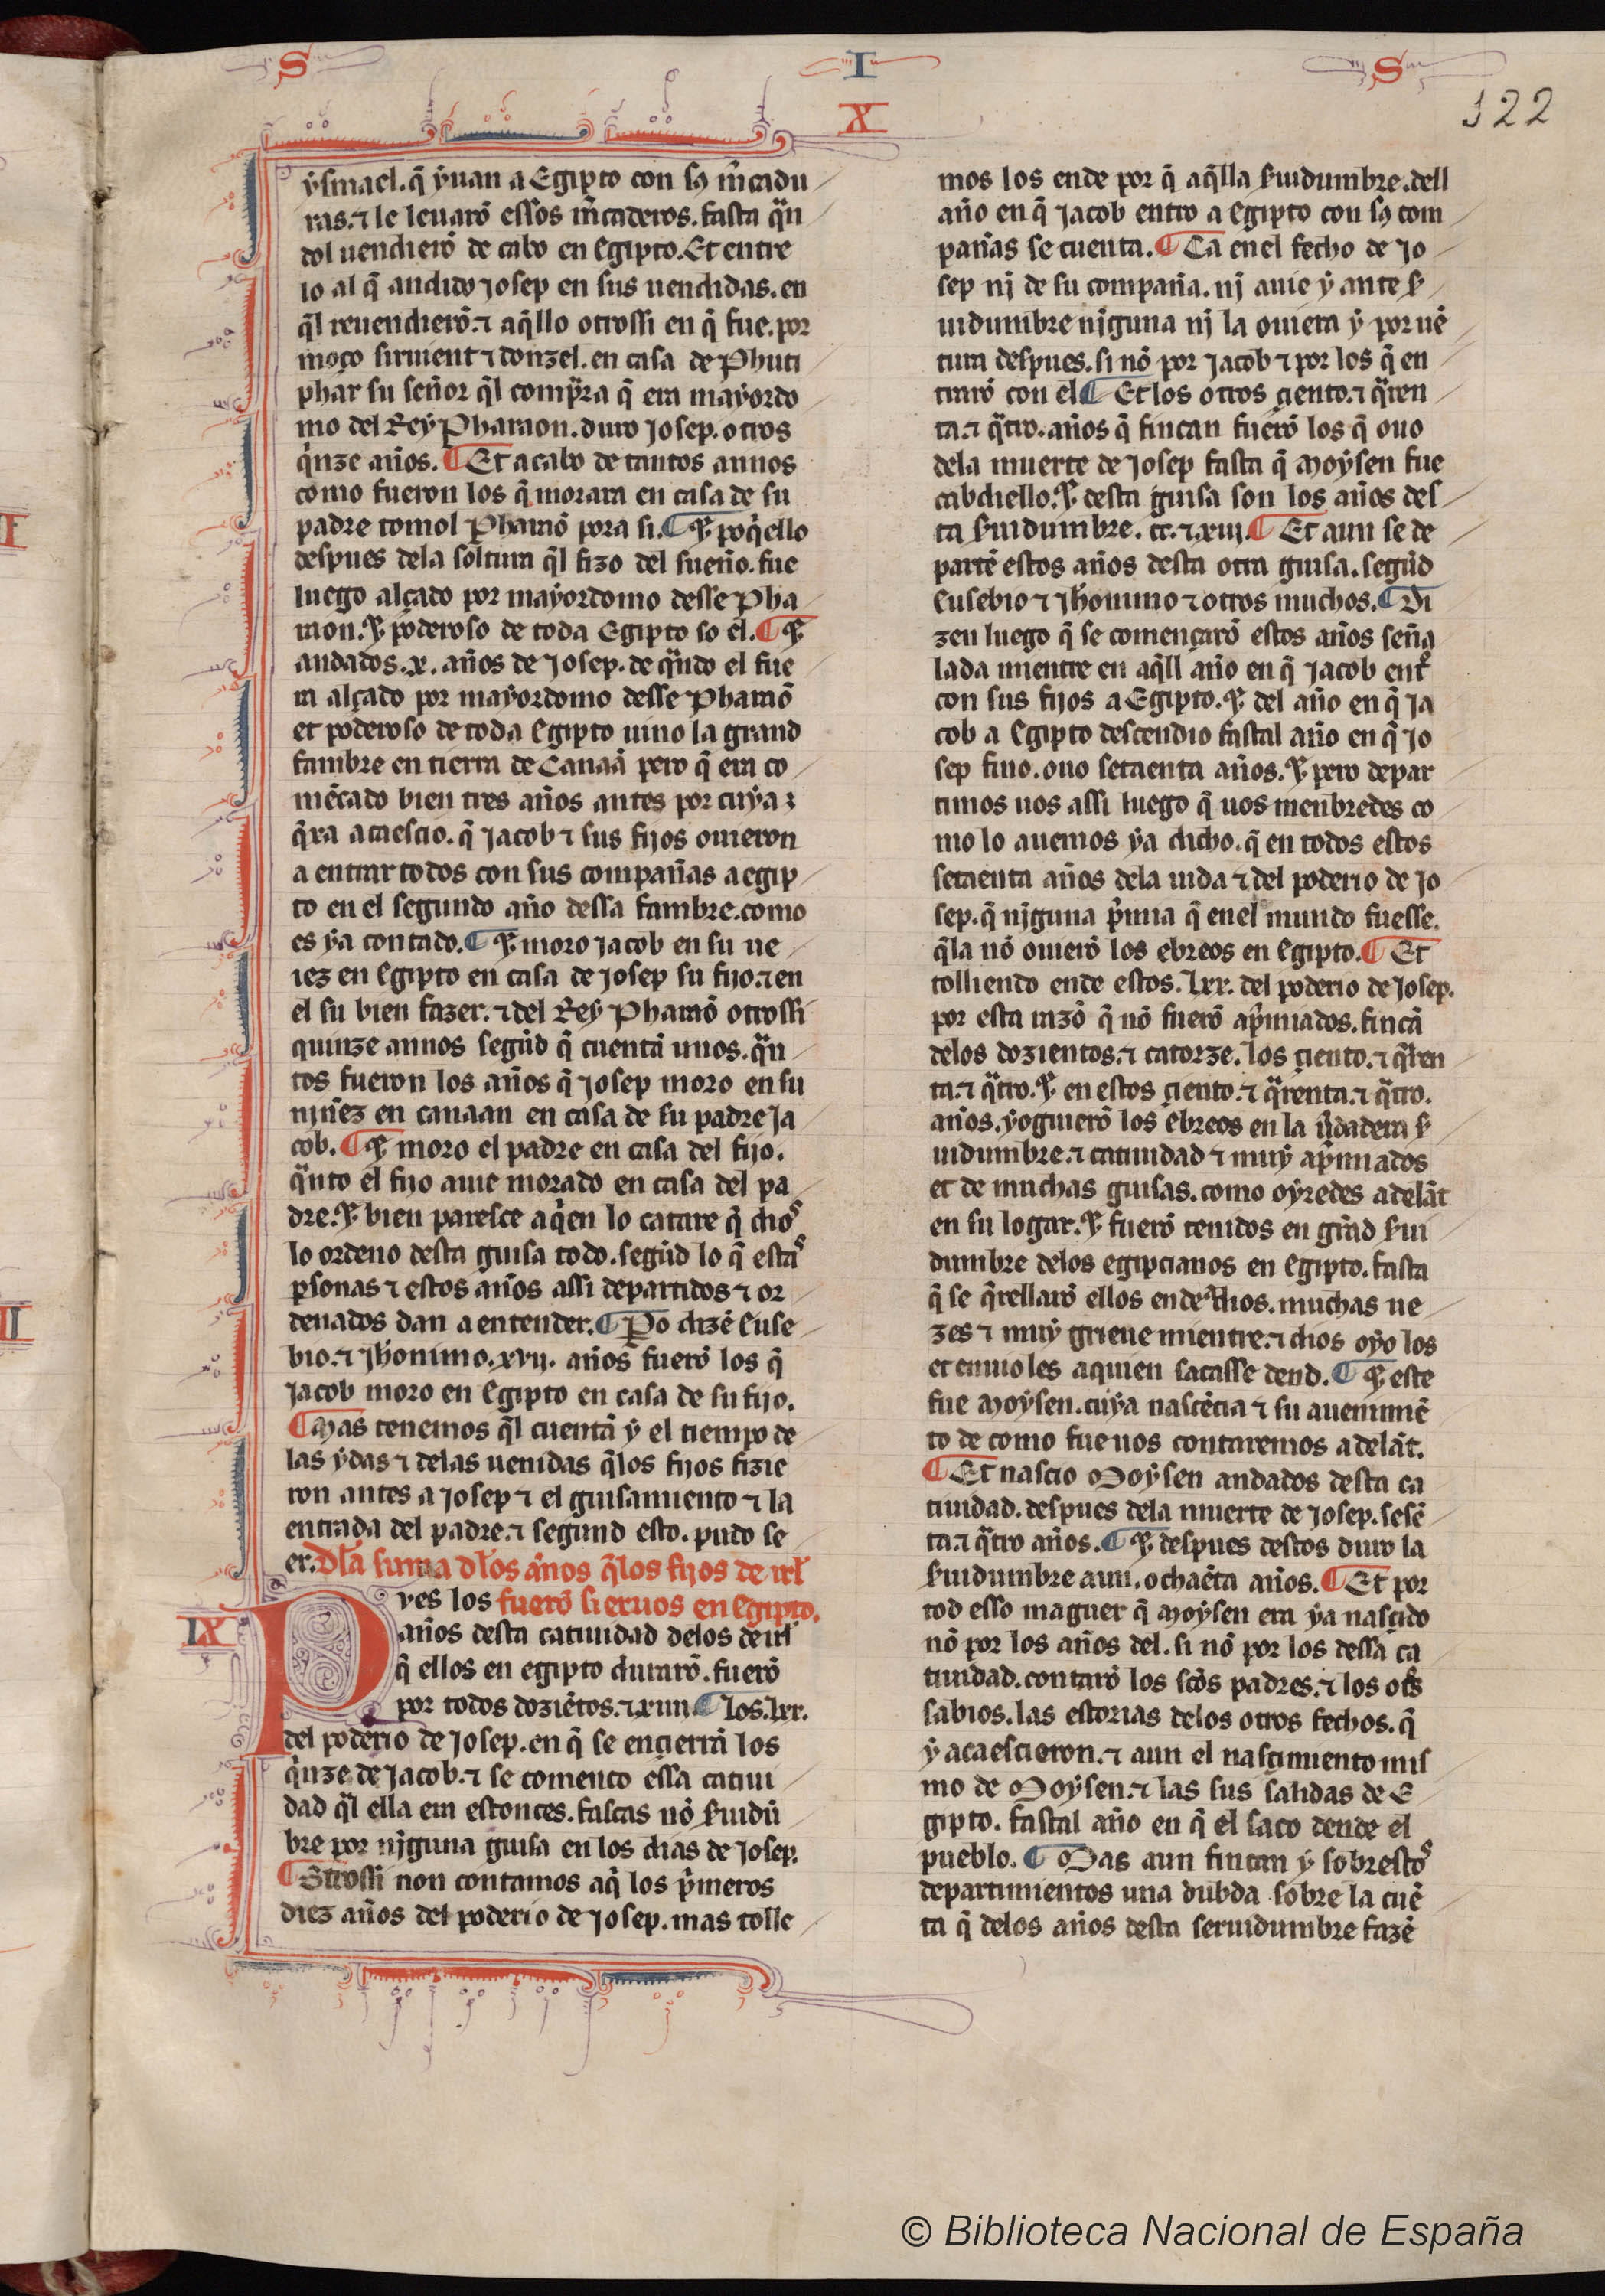 S I S
X
122
ysmael. q̃ yuan a Egipto con sꝯ m̃cadu
ras. ⁊ le leuarõ essos m̃caderos. fasta q̃n
dol uendierõ de cabo en Egipto. Et entre
lo al q̃ andido josep en sus uendidas. en
q̃l reuendierõ. ⁊ aq̃llo otrossi en q̃ fue. por
moço siruient ⁊ donzel. en casa de Phuti
phar su señor q̃l comp̃ra q̃ era mayordo
mo del Rey Pharaon. duro josep. otros
q̃nze años. ¶ Et acabo de tantos annos
como fueron los q̃ morara en casa de su
padre tomol Pharaõ pora si. ¶ ⁊ poq̃llo
despues dela soltura q̃l fizo del sueño. fue
luego alçado por mayordomo desse Pha
raon. ⁊ poderoso de toda Egipto so el. ¶ ⁊
andados. x. años de josep. de q̃ndo el fue
ra alçado por mayordomo desse Pharaõ
et poderoso de toda Egipto uino la grand
fambre en tierra de Canaã pero q̃ era co
mẽçado bien tres años antes por cuya
q̃ra acaescio. q̃ jacob ⁊ sus fijos ouieron
a entrar todos con sus compañas a egip
to en el segundo año dessa fambre. como
es ya contado. ¶ ⁊ moro jacob en su ue
iez en Egipto en casa de josep su fijo. ⁊ en
el su bien fazer. ⁊ del Rey Pharaõ otrossi
quinze annos segũd q̃ cuentã unos. q̃n
tos fueron los años q̃ josep moro en su
niñez en canaan en casa de su padre Ja
cob. ¶ ⁊ moro el padre en casa del fijo.
q̃nto el fijo auie morado en casa del pa
dre. ⁊ bien paresce a q̃en lo catare q̃ dioˢ
lo ordeno desta guisa todo. segũd lo q̃ estaˢ
ꝑsonas ⁊ estos años assi departidos ⁊ or
denados dan a entender. ¶ Po dizẽ Euse
bio. ⁊ jh̃onimo. xvij. años fuerõ los q̃
Jacob moro en Egipto en casa de su fijo.
¶ Mas tenemos q̃l cuentã y el tiempo de
las ydas ⁊ delas uenidas q̃los fijos fizie
ron antes a josep ⁊ el guisamiento ⁊ la
entrada del padre. ⁊ segund esto. pudo se
er. Dl̃a suma dl̃os años q̃los fijos de irl̃
fuerõ sieruos en Egipto.
IX
Pves los
años desta catiuidad delos de irl̃
q̃ ellos en egipto durarõ. fuerõ
por todos doziẽtos. ⁊ xiiii ¶ Los. lxx.
del poderio de josep. en q̃ se encierrã los
q̃nze de jacob. ⁊ se començo essa catiui
dad q̃l ella era estonces. fascas nõ ẞuidũ
bre por njguna guisa en los dias de josep.
¶ Otrossi non contamos aq̃ los p̃meros
diez años del poderio de josep. mas tolle
mos los ende por q̃ aq̃lla ẞuidumbre. dell
año en q̃ jacob entro a Egipto con sꝯ com
pañas se cuenta. ¶ Ca en el fecho de jo
sep nj de su compaña. nj auie y ante ẞ
uidumbre njguna nj la ouiera y por uẽ
tura despues. si nõ por jacob ⁊ por los q̃ en
trarõ con el ¶ Et los otros çiento. ⁊ q̃ren
ta. ⁊ q̃tro. años q̃ fincan fuerõ los q̃ ouo
dela muerte de josep fasta q̃ Moysen fue
cabdiello. ⁊ desta guisa son los años des
ta ẞuidumbre. cc. ⁊ xiiij. ¶ Et aun se de
partẽ estos años desta otra guisa. segũd
Eusebio ⁊ jh̃onimo ⁊ otros muchos. ¶ Di
zen luego q̃ se començarõ estos años seña
lada mientre en aq̃ll año en q̃ jacob entº
con sus fijos a Egipto. ⁊ del año en q̃ ja
cob a Egipto descendio fastal año en q̃ jo
sep fino. ouo setaenta años. ⁊ pero depar
timos uos assi luego q̃ uos menbredes co
mo lo auemos ya dicho. q̃ en todos estos
setaenta años dela uida ⁊ del poderio de jo
sep. q̃ njguna p̃mia q̃ en el mundo fuesse.
q̃la nõ ouierõ los ebreos en Egipto. ¶ Et
tolliendo ende estos. lxx. del poderio de josep.
por esta razõ q̃ nõ fuerõ ap̃miados. fincã
delos dozientos. ⁊ catorze. los çiento. ⁊ q̃ren
ta. ⁊ q̃tro. ⁊ en estos çiento. ⁊ q̃renta. ⁊ q̃tro.
años. yoguierõ los ebreos en la ũdadera ẞ
uidumbre. ⁊ catiuidad ⁊ muy ap̃miados
et de muchas guisas. como oyredes adelãt
en su logar. ⁊ fuerõ tenidos en grãd ẞui
dumbre delos egipcianos en Egipto. fasta
q̃ se q̃rellarõ ellos ende a dios. muchas ue
zes ⁊ muy grieue mientre. ⁊ dios oyo los
et enuio les a quien sacasse dend. ¶ ⁊ este
fue Moysen. cuya nascẽcia ⁊ su auenimiẽ
to de como fue uos contaremos adelãt.
¶ Et nascio Moysen andados desta ca
tiuidad. despues dela muerte de josep. sesẽ
ta. ⁊ q̃tro años. ¶ ⁊ despues destos duro la
ẞuidumbre aun. ochaẽta años. ¶ Et por
tod esso maguer q̃ Moysen era ya nasçido
nõ por los años del. si nõ por los dessa ca
tiuidad. contarõ los sc̃os padres. ⁊ los otˢ
sabios. las estorias delos otros fechos. q̃
y acaescieron. ⁊ aun el nasçimiento mis
mo de Moysen. ⁊ las sus salidas de E
gipto. fastal año en q̃ el saco dende el
pueblo. ¶ Mas aun fincan y sobrestoˢ
departimientos una dubda sobre la cuẽ
ta q̃ delos años desta seruidumbre fazẽ
© Biblioteca Nacional de España